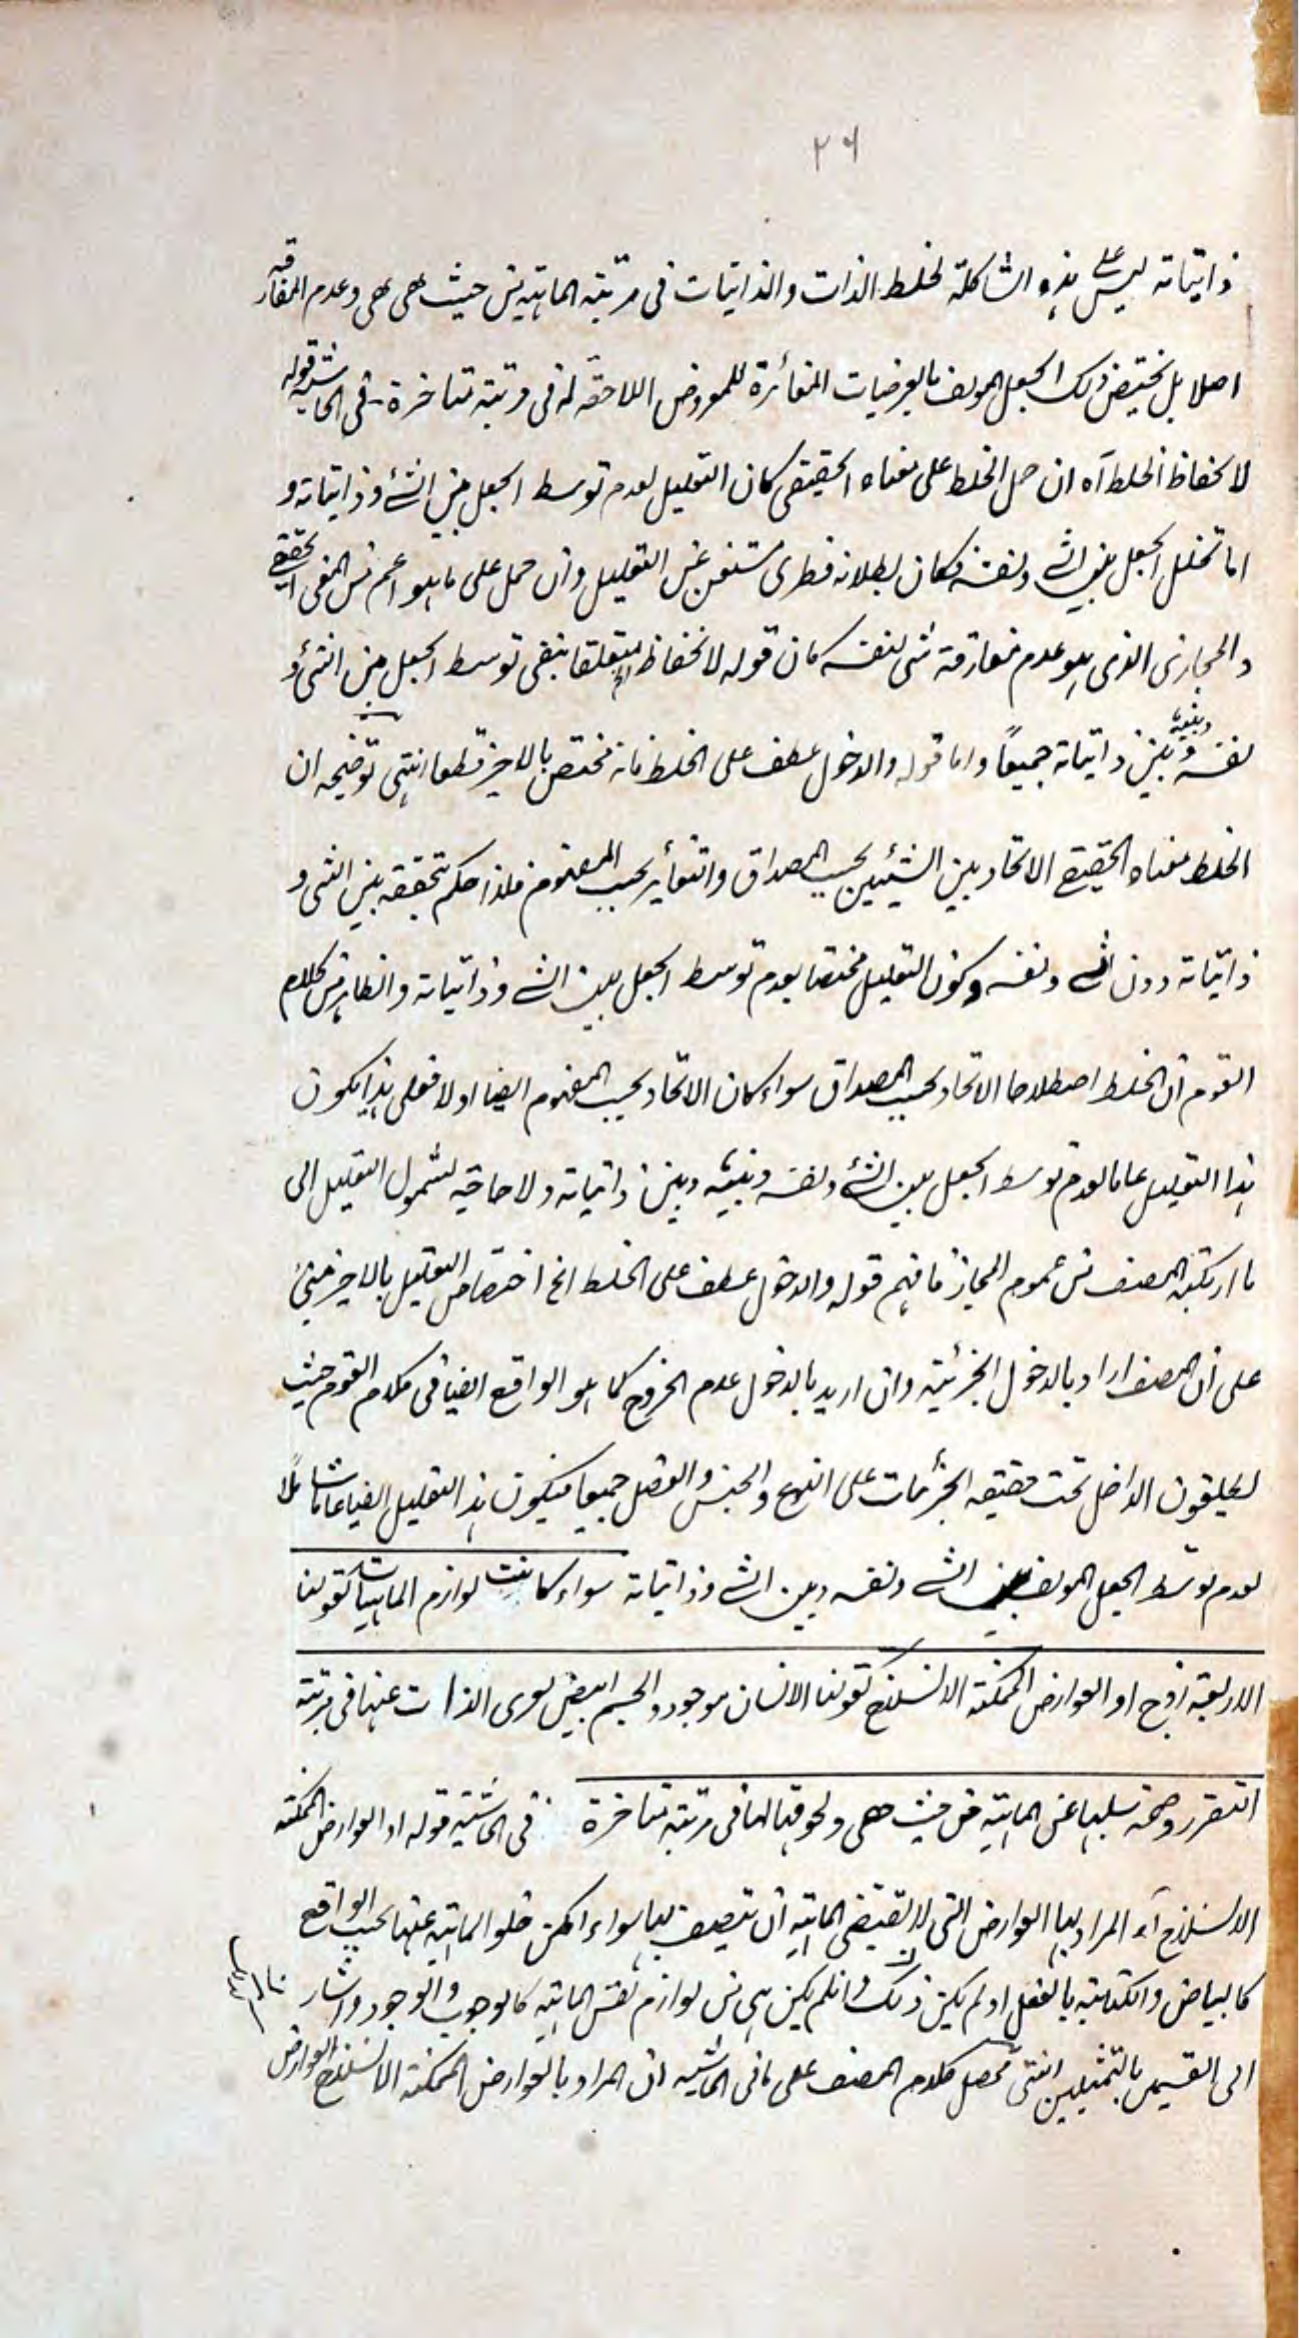 ٢٦
ذاتياته ليس على هذه الشاكلة لخلط الذات والذاتيات فى مرتبة الماهية من حيث هى هى وعدم المفارقة
اصلا بل يختص ذلك الجعل المولف بالعرضيات المتغائرة للمعروض اللاحقة له فى مرتبة متاخرة فى الحاشية قوله
لانحفاظ الخلط آه ان حمل الخلط على معناه الحقيقى كان التعليل لعدم توسط الجعل بين الشئ وذاتياته و
اما تخلل الجعل بين الشئ ونفسه فكان بطلانه فطرى مستغن عن التعليل وان حمل على ما هو اعم من المعنى الحقيقى
والمجازى الذى هو عدم مفارقة شى لنفسه كان قوله لانحفاظ متعلقا بنفى توسط الجعل بين الشئ و
نفسه وبينه وبين ذاتياته جميعاً واما قوله والدخول عطف على الخلط فانه مختص بالاخير قطعا انتهى توضيحه ان
الخلط معناه الحقيقى الاتحاد بين الشيئين بحسب المصداق والتغاير بحسب المفهوم فلذا حكم بتحققه بين الشى و
ذاتياته دون الشئ ونفسه وكون التعليل مختصا بعدم توسط الجعل بين الشئ وذاتياته والظاهر من كلام
القوم ان الخلط اصطلاحا الاتحاد بحسب المصداق سواء كان الاتحاد بحسب المفهوم ايضا اولا فعلى هذا يكون
هذا التعليل عاما لعدم توسط الجعل بين الشئ ونفسه وبينه وبين ذاتياته ولا حاجة لشمول التعليل الى
ما ارتكبه المصنف من عموم المجاز فافهم قوله والدخول عطف على الخلط الخ اختصاص التعليل بالاخير مبنى
على ان المصنف اراد بالدخول الجزئية وان اريد بالدخول عدم الخروج كما هو الواقع ايضا فى كلام القوم حيث
يطلقون الداخل تحت حقيقة الجزئيات على النوع والجنس والفصل جميعا فيكون هذا التعليل ايضا عاما شاملا
لعدم توسط الجعل المولف بين الشئ ونفسه وبين الشئ وذاتياته سواء كانت لوازم الماهيات كقولنا
الاربعة زوج او العوارض الممكنة الانسلاخ كقولنا الانسان موجود والجسم ابيض لعرى الذات عنها فى مرتبة
التقرر وصحة سلبها عن الماهية من حيث هى ولحوقها لها فى مرتبة متاخرة فى الحاشية قوله او العوارض الممكنة
الانسلاخ آه المراد بها العوارض التى لا تقتضى الماهية ان تتصف بها سواء امكن خلو الماهية عنها بحسب الواقع
كالبياض والكتابة بالفعل او لم يكن ذلك وان لم يكن هى من لوازم نفس الماهية كالوجوب والوجود واشار
الى القسمين بالتمثيلين انتهى محصل كلام المصنف على ما فى الحاشية ان المراد بالعوارض الممكنة الانسلاخ العوارض